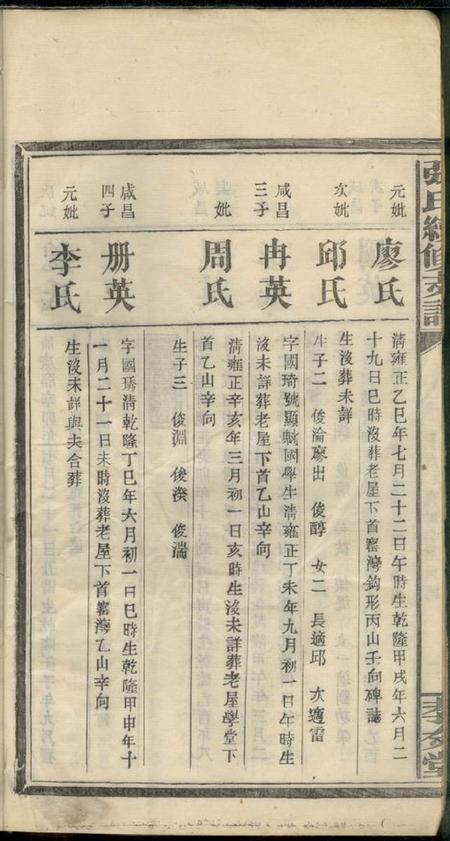 張氏續修支譜
孝友堂
元妣
廖氏
清雍正乙巳年七月二十二日午時生乾隆甲戌年六月二
十九日巳時沒葬老屋下首窰灣鈎形丙山壬向碑誌
次妣
邱氏
生沒葬未詳
生子二 俊淪廖出 俊醇 女二 長適邱 次適雷
咸昌
三子
冉英
字國琦號顯贇國學生清雍正丁未年九月初一日午時生
沒未詳葬老屋下首乙山辛向
妣
周氏
清雍正辛亥年三月初一日亥時生沒未詳葬老屋學堂下
首乙山辛向
生子三 俊淵 俊湀 俊湍
咸昌
四子
册英
字國琇清乾隆丁巳年六月初一日巳時生乾隆甲申年十
一月二十一日未時沒葬老屋下首窰灣乙山辛向
元妣
李氏
生沒未詳與夫合葬